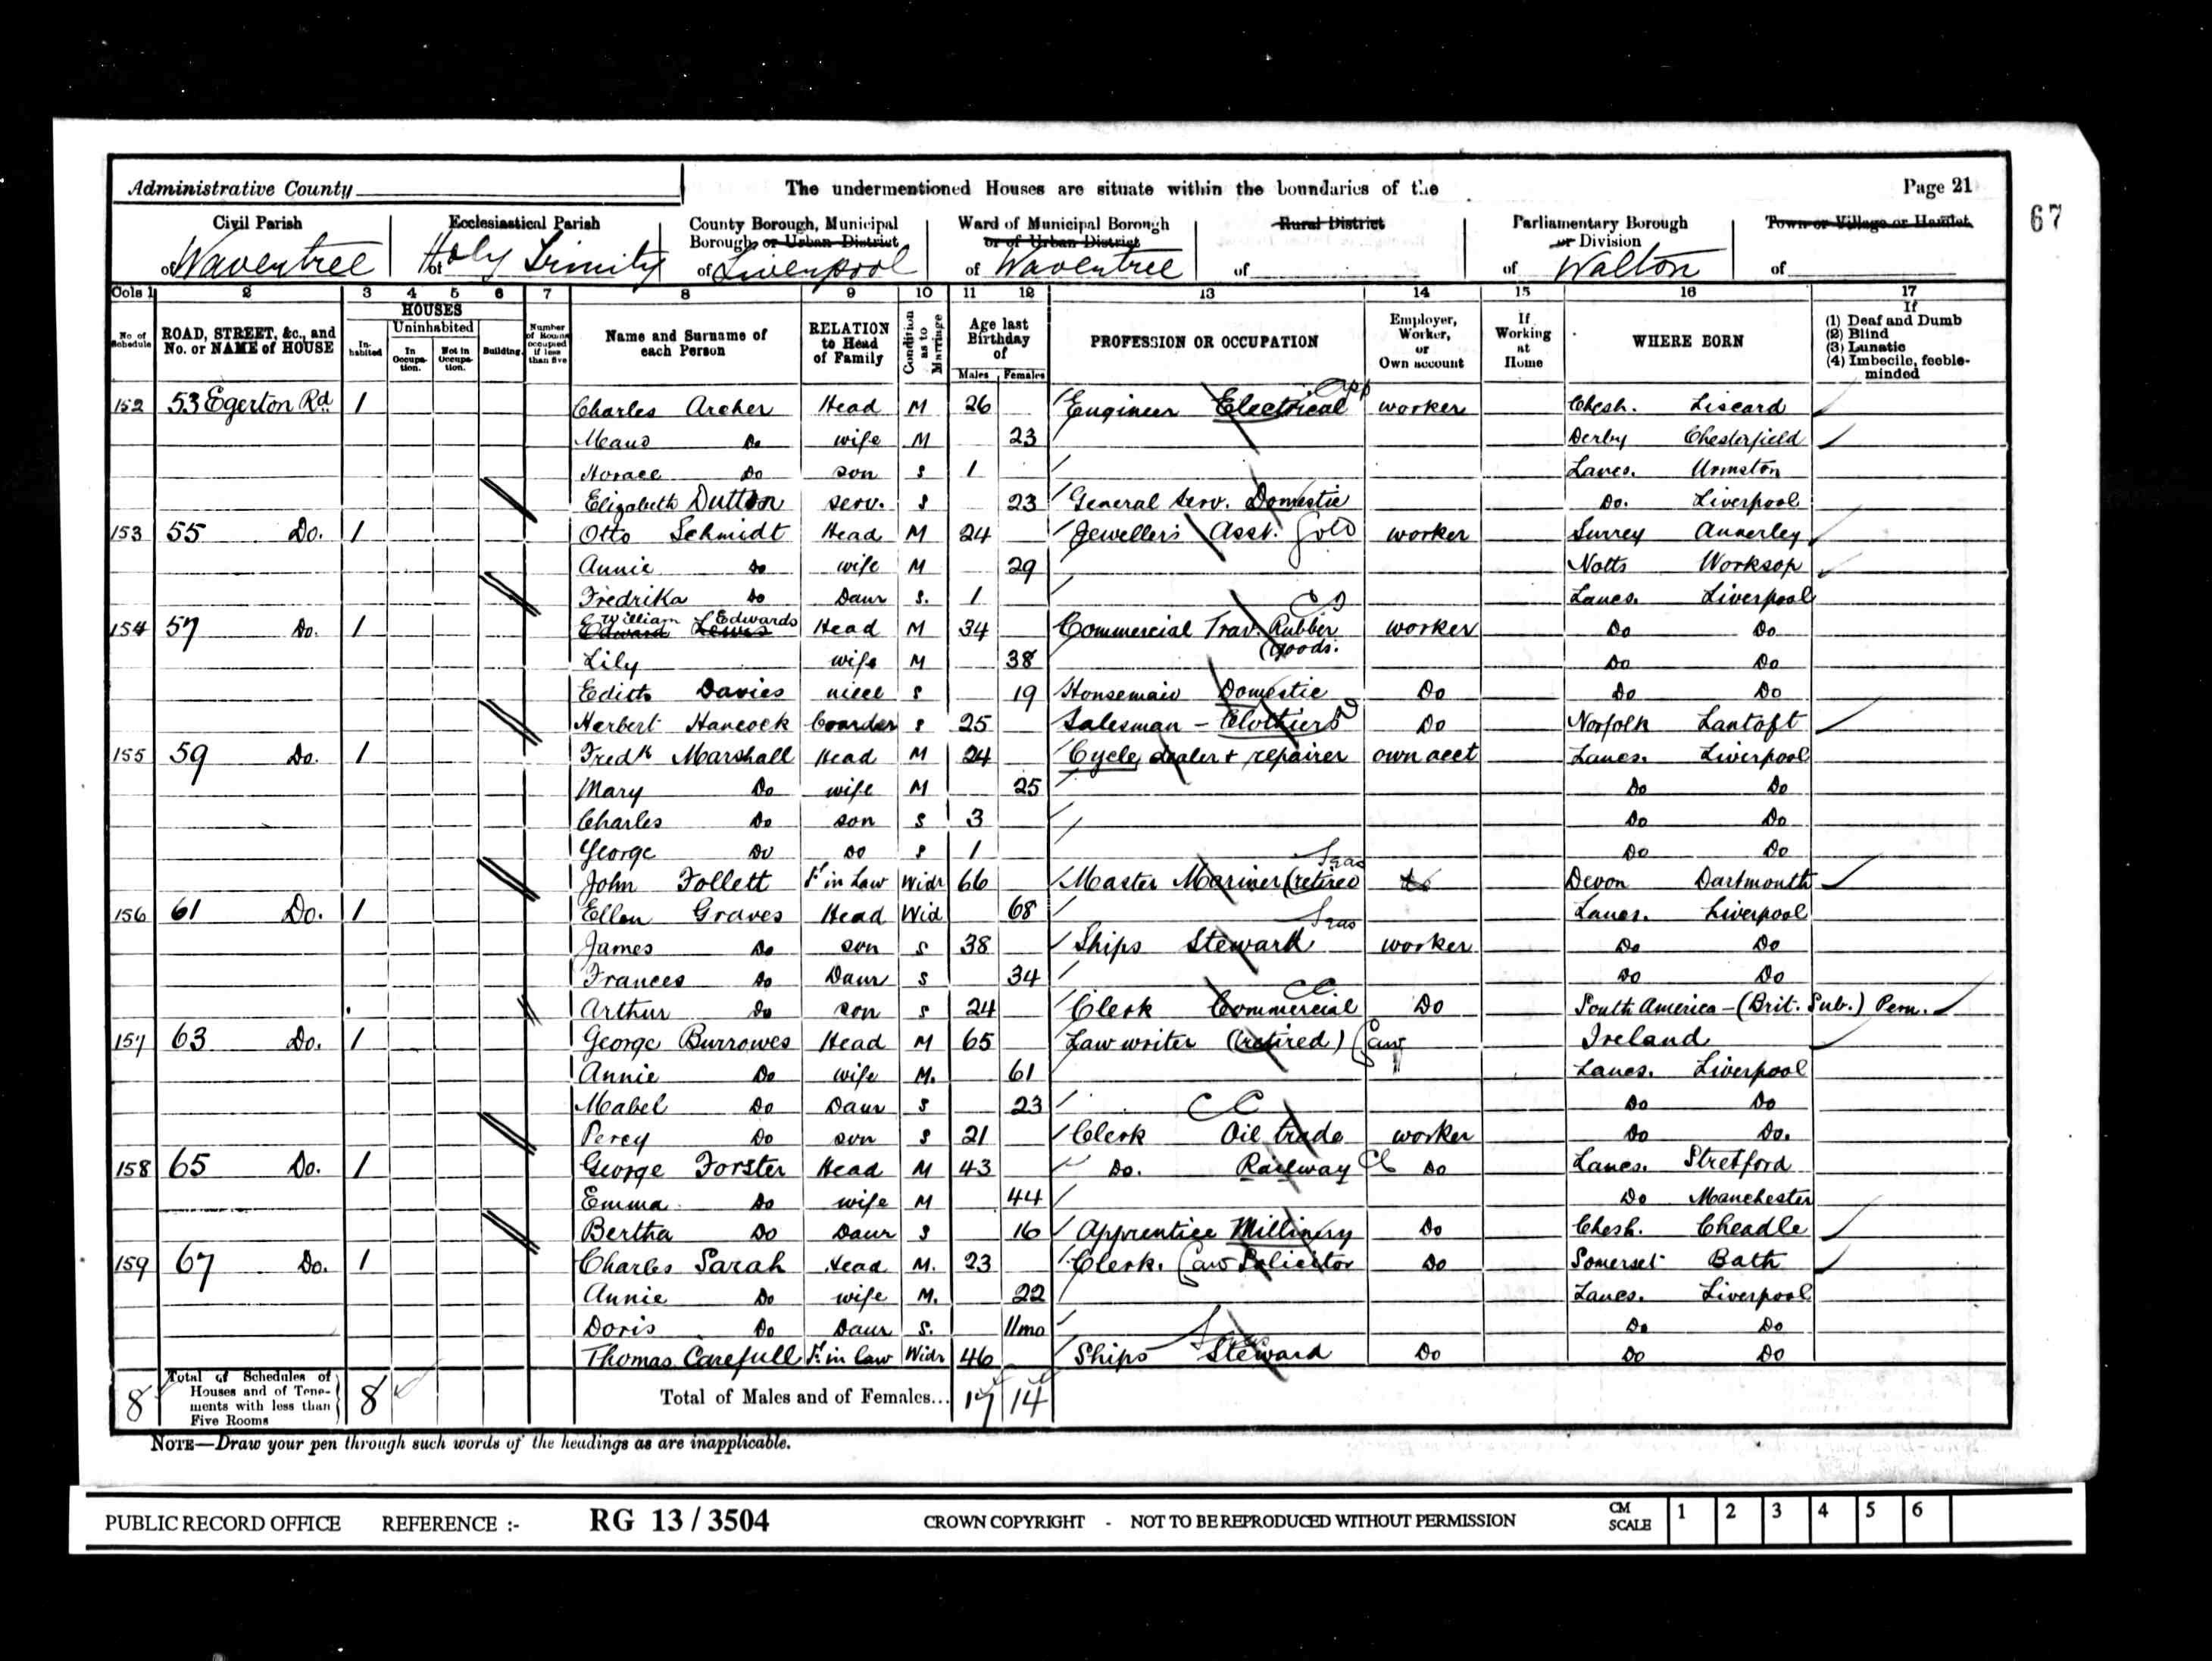 Administrative County The undermentioned Houses are situate within the boundaries of the Page 21
67
Civil Parish Ecclesiastical Parish County Borough, Municipal Borough, or Urban District Ward of Municipal Borough or of Urban District Rural District Parliamentary Borough or Division Town or Village or Hamlet
of Wavertree of Holy Trinity of Liverpool of Wavertree of of Walton of
Cols 1 2 3 4 5 6 7 8 9 10 11 12 13 14 15 16 17
No. of Schedule ROAD, STREET, &c., and No. or NAME of HOUSE HOUSES Inhabited Uninhabited In Occupation. Not in Occupation. Building. Number of Rooms occupied if less than five Name and Surname of each Person RELATION to Head of Family Condition as to Marriage Age last Birthday of Males Females PROFESSION OR OCCUPATION Employer, Worker, or Own account If Working at Home WHERE BORN If (1) Deaf and Dumb (2) Blind (3) Lunatic (4) Imbecile, feeble-minded
152 53 Egerton Rd. 1 Charles Archer Head M 26 Engineer Electrical App worker Chesh. Liscard
Maud Do wife M 23 Derby Chesterfield
Horace Do son S 1 Lancs. Urmston
Elizabeth Dutton serv. S 23 General Serv. Domestic Do. Liverpool
153 55 Do. 1 Otto Schmidt Head M 24 Jewellers Asst. Gold worker Surrey Annerley
Annie Do wife M 29 Notts Worksop
Fredrika Do Daur S. 1 Lancs. Liverpool
154 57 Do. 1 Edward Lewis William Edwards Head M 34 Commercial Trav. Rubber goods. worker Do Do
Lily wife M 38 Do Do
Edith Davies niece S 19 Housemaid Domestic Do Do Do
Herbert Hancock boarder S 25 Salesman - Clothiers Do Norfolk Lantoft
155 59 Do. 1 Fredk Marshall Head M 24 Cycle dealer + repairer own acct Lancs. Liverpool
Mary Do wife M 25 Do Do
Charles Do son S 3 Do Do
George Do Do S 1 Do Do
John Follett F. in Law Widr 66 Master Mariner (retired Do Devon Dartmouth
156 61 Do. 1 Ellen Graves Head Wid 68 Lancs. Liverpool
James Do son S 38 Ships Steward worker Do Do
Frances Do Daur S 34 Do Do
Arthur Do son S 24 Clerk Commercial CC Do South America - (Brit. Sub.) Peru.
157 63 Do. 1 George Burrowes Head M 65 Law writer (retired) Law Ireland
Annie Do wife M. 61 Lancs. Liverpool
Mabel Do Daur S 23 Do Do
Percy Do son S 21 Clerk Oil trade CC worker Do Do.
158 65 Do. 1 George Forster Head M 43 Do. Railway Cl Do Lancs. Stretford
Emma Do wife M 44 Do Manchester
Bertha Do Daur S 16 Apprentice Millinery Do Chesh. Cheadle
159 67 Do. 1 Charles Sarah Head M. 23 Clerk. Law Solicitor Do Somerset Bath
Annie Do wife M. 22 Lancs. Liverpool
Doris Do Daur S. 11mo Do Do
Thomas Carefull F. in law Widr 46 Ships Steward Do Do Do
8 Total of Schedules of Houses and of Tenements with less than Five Rooms 8 Total of Males and of Females... 17 14
NOTE—Draw your pen through such words of the headings as are inapplicable.
PUBLIC RECORD OFFICE REFERENCE :- RG 13 / 3504 CROWN COPYRIGHT - NOT TO BE REPRODUCED WITHOUT PERMISSION CM SCALE 1 2 3 4 5 6